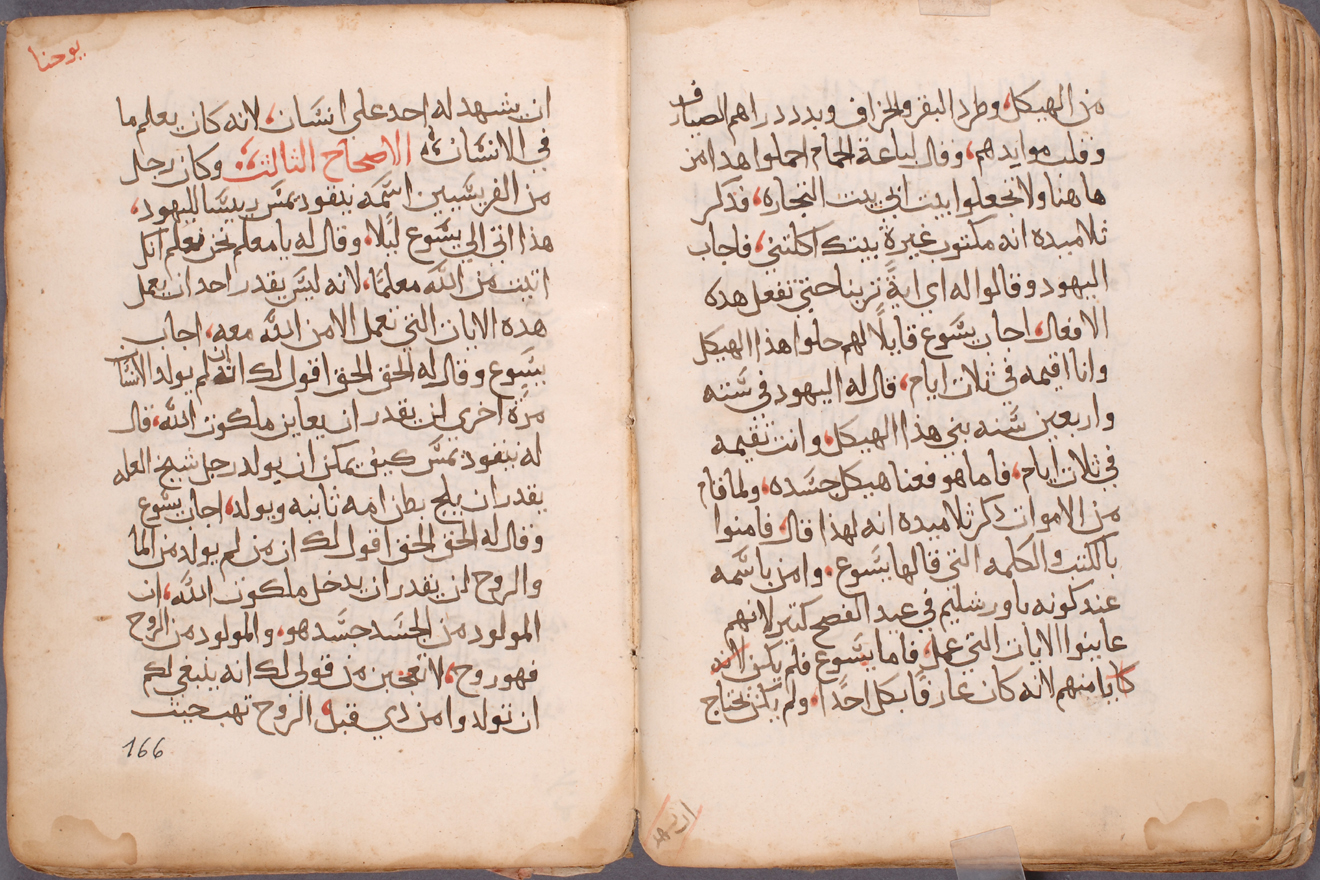 من الهيكل، وطرد البقر والخراف وبدد دراهم الصيارف
وقلب موايدهم، وقال لباعة الحمام احملوا هدا من
هاهنا ولا تجعلوا بيت ابي بيت التجاره، فذكر
تلاميده انه مكتوب غيرة بيتك اكلتني، فاجاب
اليهود وقالوا له اي ايةً ترينا حتي تفعل هده
الافعال، اجاب يسوع قايلًا لهم حلوا هذا الهيكل
وانا اقيمه في ثلات ايام، قال له اليهود في سته
واربعين سنه بني هذا الهيكل، وانت تقيمه
في ثلات ايام، فاما هو فعنا هيكل جسده، ولما قام
من الاموات دكر تلاميده انه لهذا قال، فامنوا
بالكتب والكلمه التي قالها يسوع، وامن باسمه
عند كونه باورشليم في عيد الفصح كتير لانهم
عاينوا الايات التي عمل، فاما يسوع فلم يكن لانه
يامنهم لانه كان عارفًا بكل احدًا، ولم يكن يحتاج
ان يشهد
يوحنا
ان يشهد له احد على انسان، لانه كان يعلم ما
في الانسان، الاصحاح الثالث، وكان رجل
من الفريسيين اسمه نيقوديمس رييسا لليهود،
هذا اتى الي يسوع ليلًا، وقال له يا معلم نحن نعلم انك
اتيت من الله معلمًا، لانه ليس يقدر احد ان يعمل
هده الايات التي تعمل الا من الله معه، اجاب
يسوع وقال له الحق الحق اقول لك انه ان لم يولد الانسان
مرة اخرى لن يقدر ان يعاين ملكوت الله، قال
له نيقوديمس كيف يمكن ان يولد رجل شيخ العله
يقدر ان يلج بطن امه تانيه ويولد، اجاب يسوع
وقال له الحق الحق اقول لك ان من لم يولد من الما
والروح لن يقدر ان يدخل ملكوت الله، ان
المولود من الجسد جسد هو، والمولود من الروح
فهو روح، لا تعجبن من قولى لك انه ينبغي لكم
ان تولدوا من دي قبل، الروح تهب حيت
166